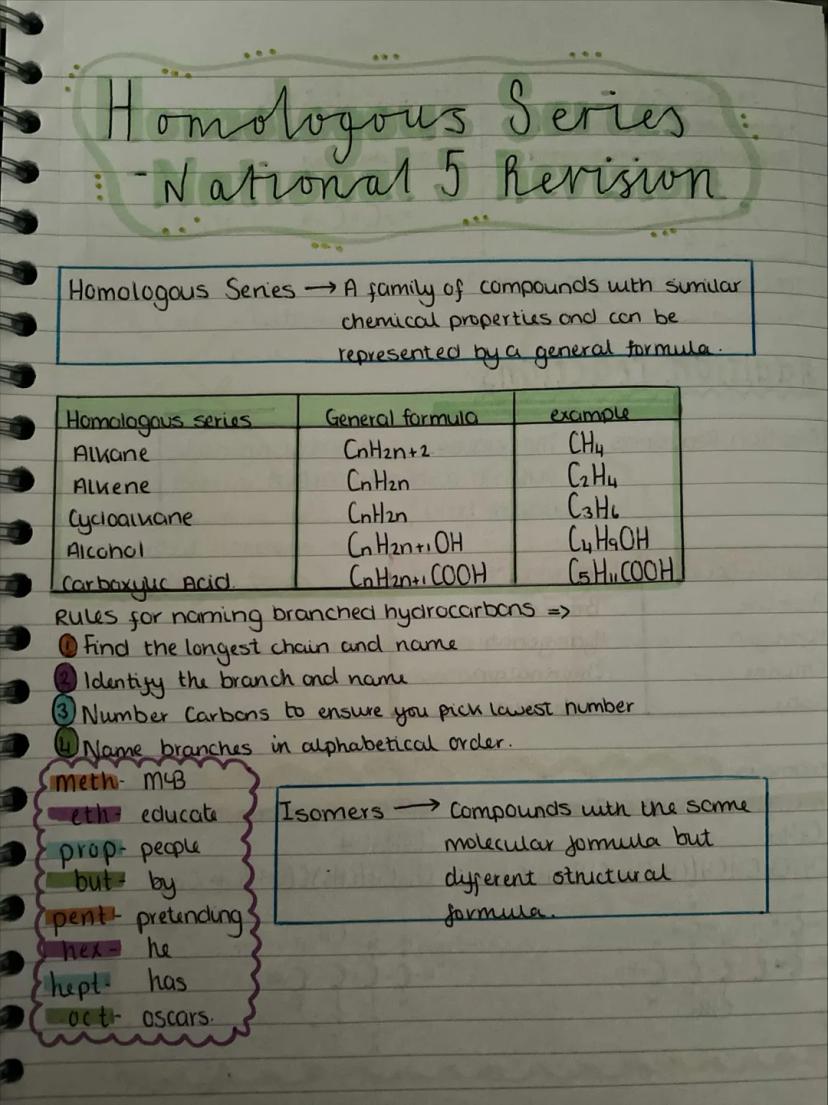 Homologous Series
-National 5 Revision
Homologous Series → A family of compounds with similar
chemical properties and can be
represented by a general formula.
Homologous series General formula example
Alkane CnH2n+2 CH4
Alkene CnH2n C2H4
Cycloalkane CnH2n C3H6
Alcohol CnH2n+1OH C4H9OH
Carboxylic Acid CnH2n+1COOH C5H11COOH
Rules for naming branched hydrocarbons =>
1 Find the longest chain and name
2 Identify the branch and name
3 Number Carbons to ensure you pick lowest number
4 Name branches in alphabetical order.
meth- McB
eth- educate
prop- people
but- by
pent- pretending
hex- he
hept- has
oct- oscars.
Isomers → Compounds with the same
molecular formula but
different structural
formula.